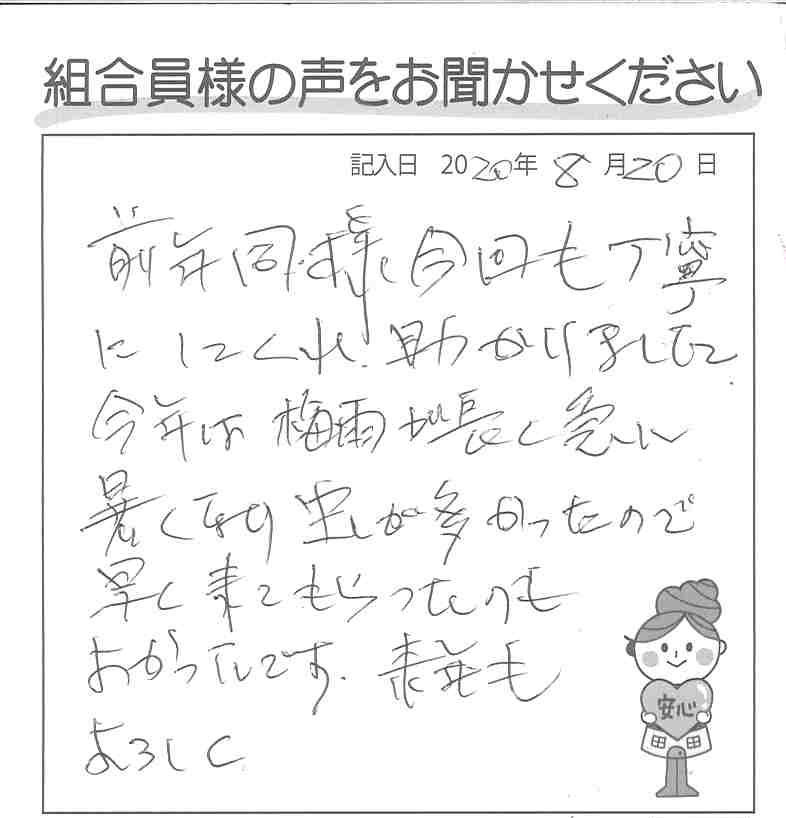 組合員様の声をお聞かせください
記入日 2020年 8月20日
前年同様今回も丁寧
にしてくれ助かりました
今年は梅雨が長く急に
暑くなり虫が多かったので
早く来てもらったのも
よかったです。来年も
よろしく
安心